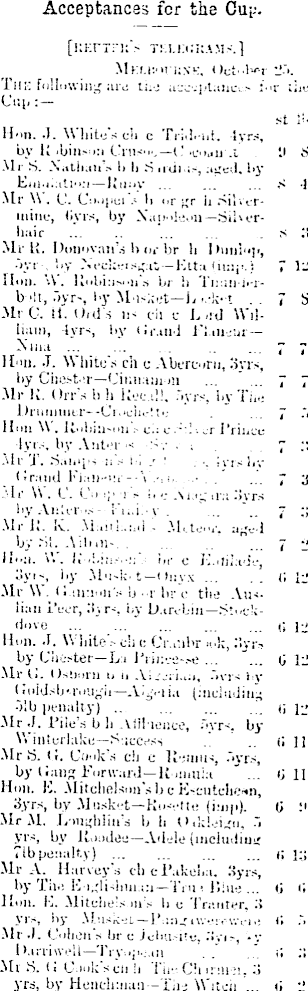 Acceptances for the Cup.
[REUTER'S TELEGRAMS.]
MELBOURNE, October 25.
THE following are the acceptances for the
Cup :—
st lb
Hon. J. White's ch c Trident, 4yrs,
by Robinson Crusoe—Cocoanut .. 9 8
Mr S. Nathan's b h Sardius, aged, by
Emulation—Ruby ... ... ... 8 4
Mr W. C. Cooper's b or gr h Silver-
mine, 6yrs, by Napoleon—Silver-
hair ... ... ... ... 8 3
Mr R. Donovan's b or br h Dunlop,
5yrs, by Neckersgat—Etta (imp.) 7 12
Hon. W. Robinson's br h Thunder-
bolt, 5yrs, by Musket—Locket .. 7 8
Mr C. H. Ord's ns ch c Lord Wil-
liam, 4yrs, by Grand Flaneur—
Nina ... ... ... ... 7 7
Hon. J. White's ch c Abercorn, 3yrs,
by Chester—Cinnamon ... ... 7 7
Mr R. Orr's b h Recall, 5yrs, by The
Drummer—Crochette ... ... 7 5
Hon W. Robinson's ch c Silver Prince
4yrs, by Anteros 7 3
Mr T. 4yrs by
Grand Flaneur— 7 3
Mr W. C. Cooper's b c Niagara 3yrs
by Anteros— 7 3
Mr R. K. Maitland's Meteor, aged
by St. Albans 7 2
Hon. W. Robinson's br c Enfilade,
3yrs, by Musket—Onyx ... .. 6 12
Mr W. Gannon's b or br c the Aus-
lian Peer, 3yrs, by Darebin—Stock-
dove ... ... ... ... 6 12
Hon. J. White's ch c Cranbrook, 3yrs
by Chester—La Princesse ... ... 6 12
Mr G. Osborn b h Algerian, 5yrs by
Goldsborough—Algeria (including
5lb penalty) .. ... ... ... 6 12
Mr J. Pile's b h Affluence, 5yrs, by
Winterlake—Success .. .. 6 11
Mr S. G. Cook's ch c Remus, 5yrs,
by Gang Forward—Romula ... 6 11
Hon. E. Mitchelson's b c Escutcheon,
3yrs, by Musket—Rosette (imp). 6 9
Mr M. Loughlin's b h Oakleigh, 5
yrs, by Roodee—Adele (including
7lb penalty) ... ... ... ... 6 13
Mr A. Harvey's ch c Pakeha, 3yrs,
by The Englishman—True Blue ... 6 6
Hon. E. Mitchelson's b c Tranter, 3
yrs, by Musket—Pangiwerewere 6 5
Mr J. Cohen's br c Jebusite, 3yrs, by
Darriwell—Trypean ... .. 6 3
Mr S. G Cook's cn h The Charmer, 3
yrs, by Henchman—The Witch ... 6 2